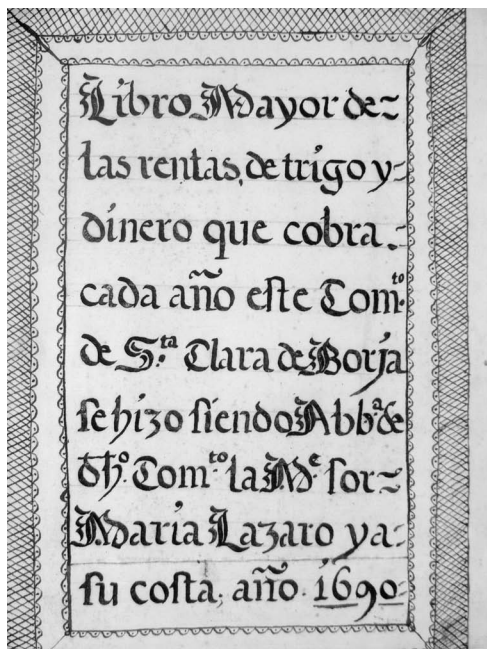 Libro Mayor de~
las rentas, de trigo y~
dinero que cobra.~
cada año este Comto.
de S.ta Clara de Borja
se hizo siendo Abba. de
dho. Comto. la Me. sor~
Maria Lazaro ya~
su costa, año. 1690